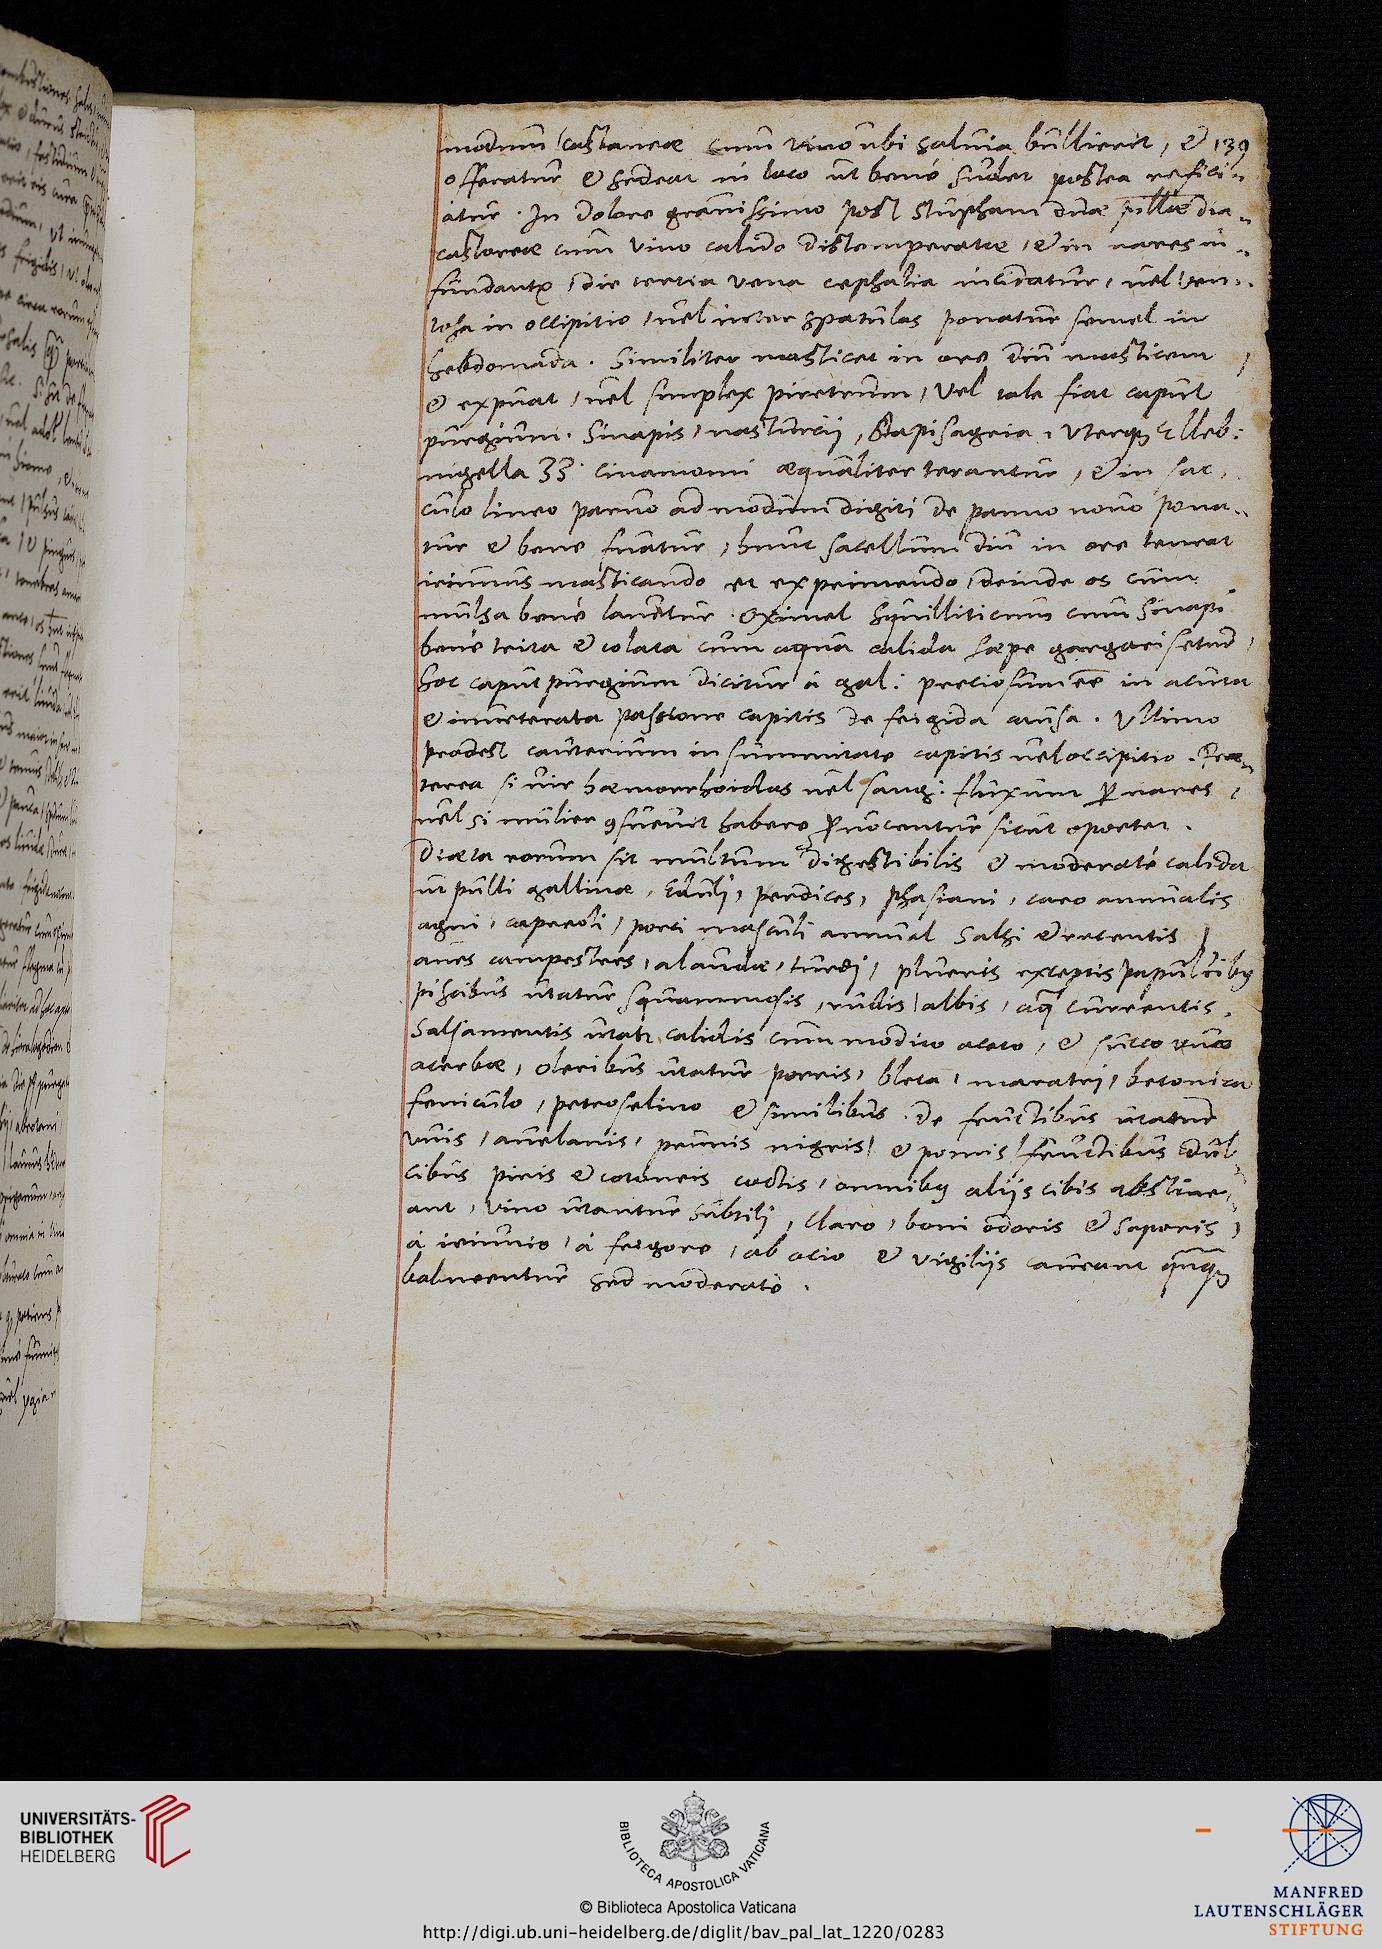 modum castaneæ cum vino ubi saluia bullierit, & 139
offeratur & sedeat in loco ut bené sudet postea refici-
atur. In dolore grauissimo post stupham duæ pillæ dia-
castoreæ cum vino calido distemperatæ, & in nares in-
fundantr, die tertia vena cephalia incidatur, uel ven-
tosa in occipitio, uel inter spatulas ponatur semel in
hebdomada. Similiter masticet in ore diu masticem,
& expuat, uel simplex piretrum, Vel tale fiat caput
purgium. Sinapis, nasturcij, stapisagria, Uterqꝫ Elleb:
nigella ʒʒ. cinamomi æqualiter terantur, & in sac-
culo lineo paruo ad modum digiti de panno nouo pona-
tur & bene suatur, hunc sacellum diu in ore teneat
ieiunus masticando et exprimendo, deinde os cum
mulsa bené lauetur. Oximel squilliticum cum sinapi
bené trita & colata cum aqua calida sæpe gargarisetur,
hoc caput purgium dicitur á gal: preciosum ee̅ in acuta
& inueterata passione capitis de frigida causa. Ultimo
prodest cauterium in summitate capitis uel occipitio. Præ-
terea si uir hæmorrhoidas uel sang: fluxum ꝑ nares,
uel si mulier ꝯsueuit habere ꝓuocentur sicut oportet.
Diæta eorum sit multum digestibilis & moderaté calida
ut pulli gallinæ, Edulj, perdices, phasiani, caro annualis
agni, capreoli, porci masculi annual salsi & recentis,
aues campestres, alaudæ, turdj, plueris exceptis papulcibꝫ
piscibus utatur squammosis, rudis, albis, aq̃ currentis.
Salsamentis utatr calidis cum modico aceto, & succo uuæ
acerbæ, oleribus utatur porris, bleta, maratrj, betonica
feniculo, petroselino & similibus. De fructibus utatur
vuis, auelanis, prunis nigris, & pomis, fructibus dul-
cibus piris & cotoneis coctis, omnibꝫ alijs cibis abstine-
ant, Vino utantur subtilj, claro, boni odoris & saporis,
á ieiunio, á frigore, ab ocio & vigilijs caueant qn̅qꝫ
balneentur sed moderaté.
UNIVERSITÄTS-
BIBLIOTHEK
HEIDELBERG
BIBLIOTECA APOSTOLICA VATICANA
© Biblioteca Apostolica Vaticana
http://digi.ub.uni-heidelberg.de/diglit/bav_pal_lat_1220/0283
MANFRED
LAUTENSCHLÄGER
STIFTUNG